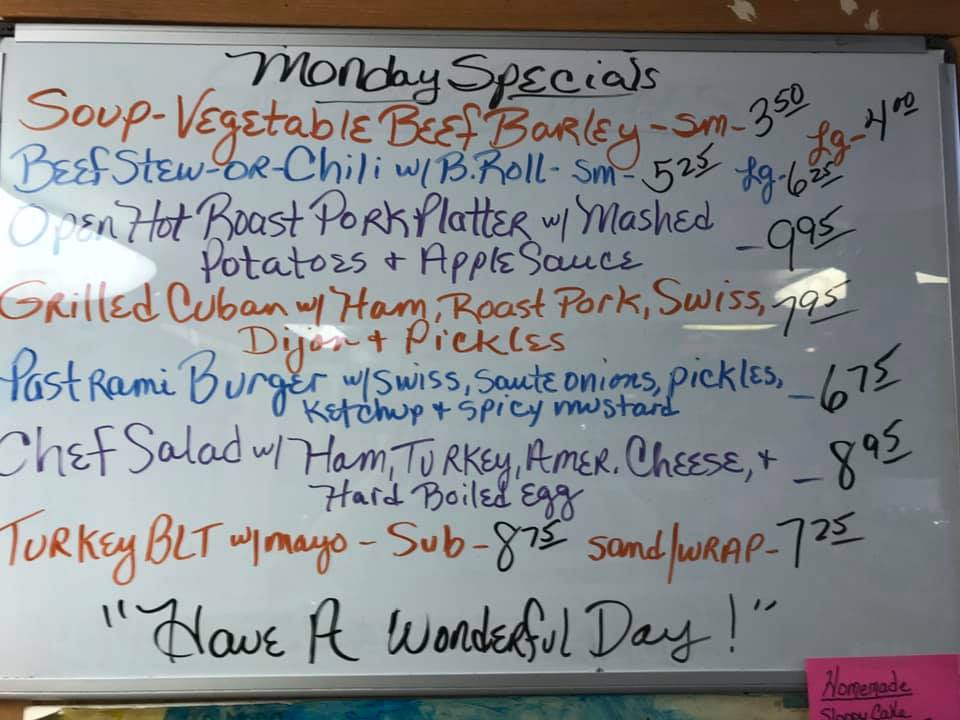 Monday Specials
Soup-Vegetable Beef Barley - sm- 3.50 Lg- 4.00
Beef Stew-or-Chili w/ B.Roll- sm- 5.25 Lg-6.25
Open Hot Roast Pork Platter w/ Mashed
Potatoes + Apple Sauce - 9.95
Grilled Cuban w/ Ham, Roast Pork, Swiss, 7.95
Dijon + Pickles
Pastrami Burger w/swiss, saute onions, pickles,
ketchup + spicy mustard - 6.75
Chef Salad w/ Ham, Turkey, Amer. Cheese, +
Hard Boiled egg - 8.95
Turkey BLT w/mayo - Sub - 8.75 sand/wrap - 7.25
"Have A Wonderful Day!"
Homemade